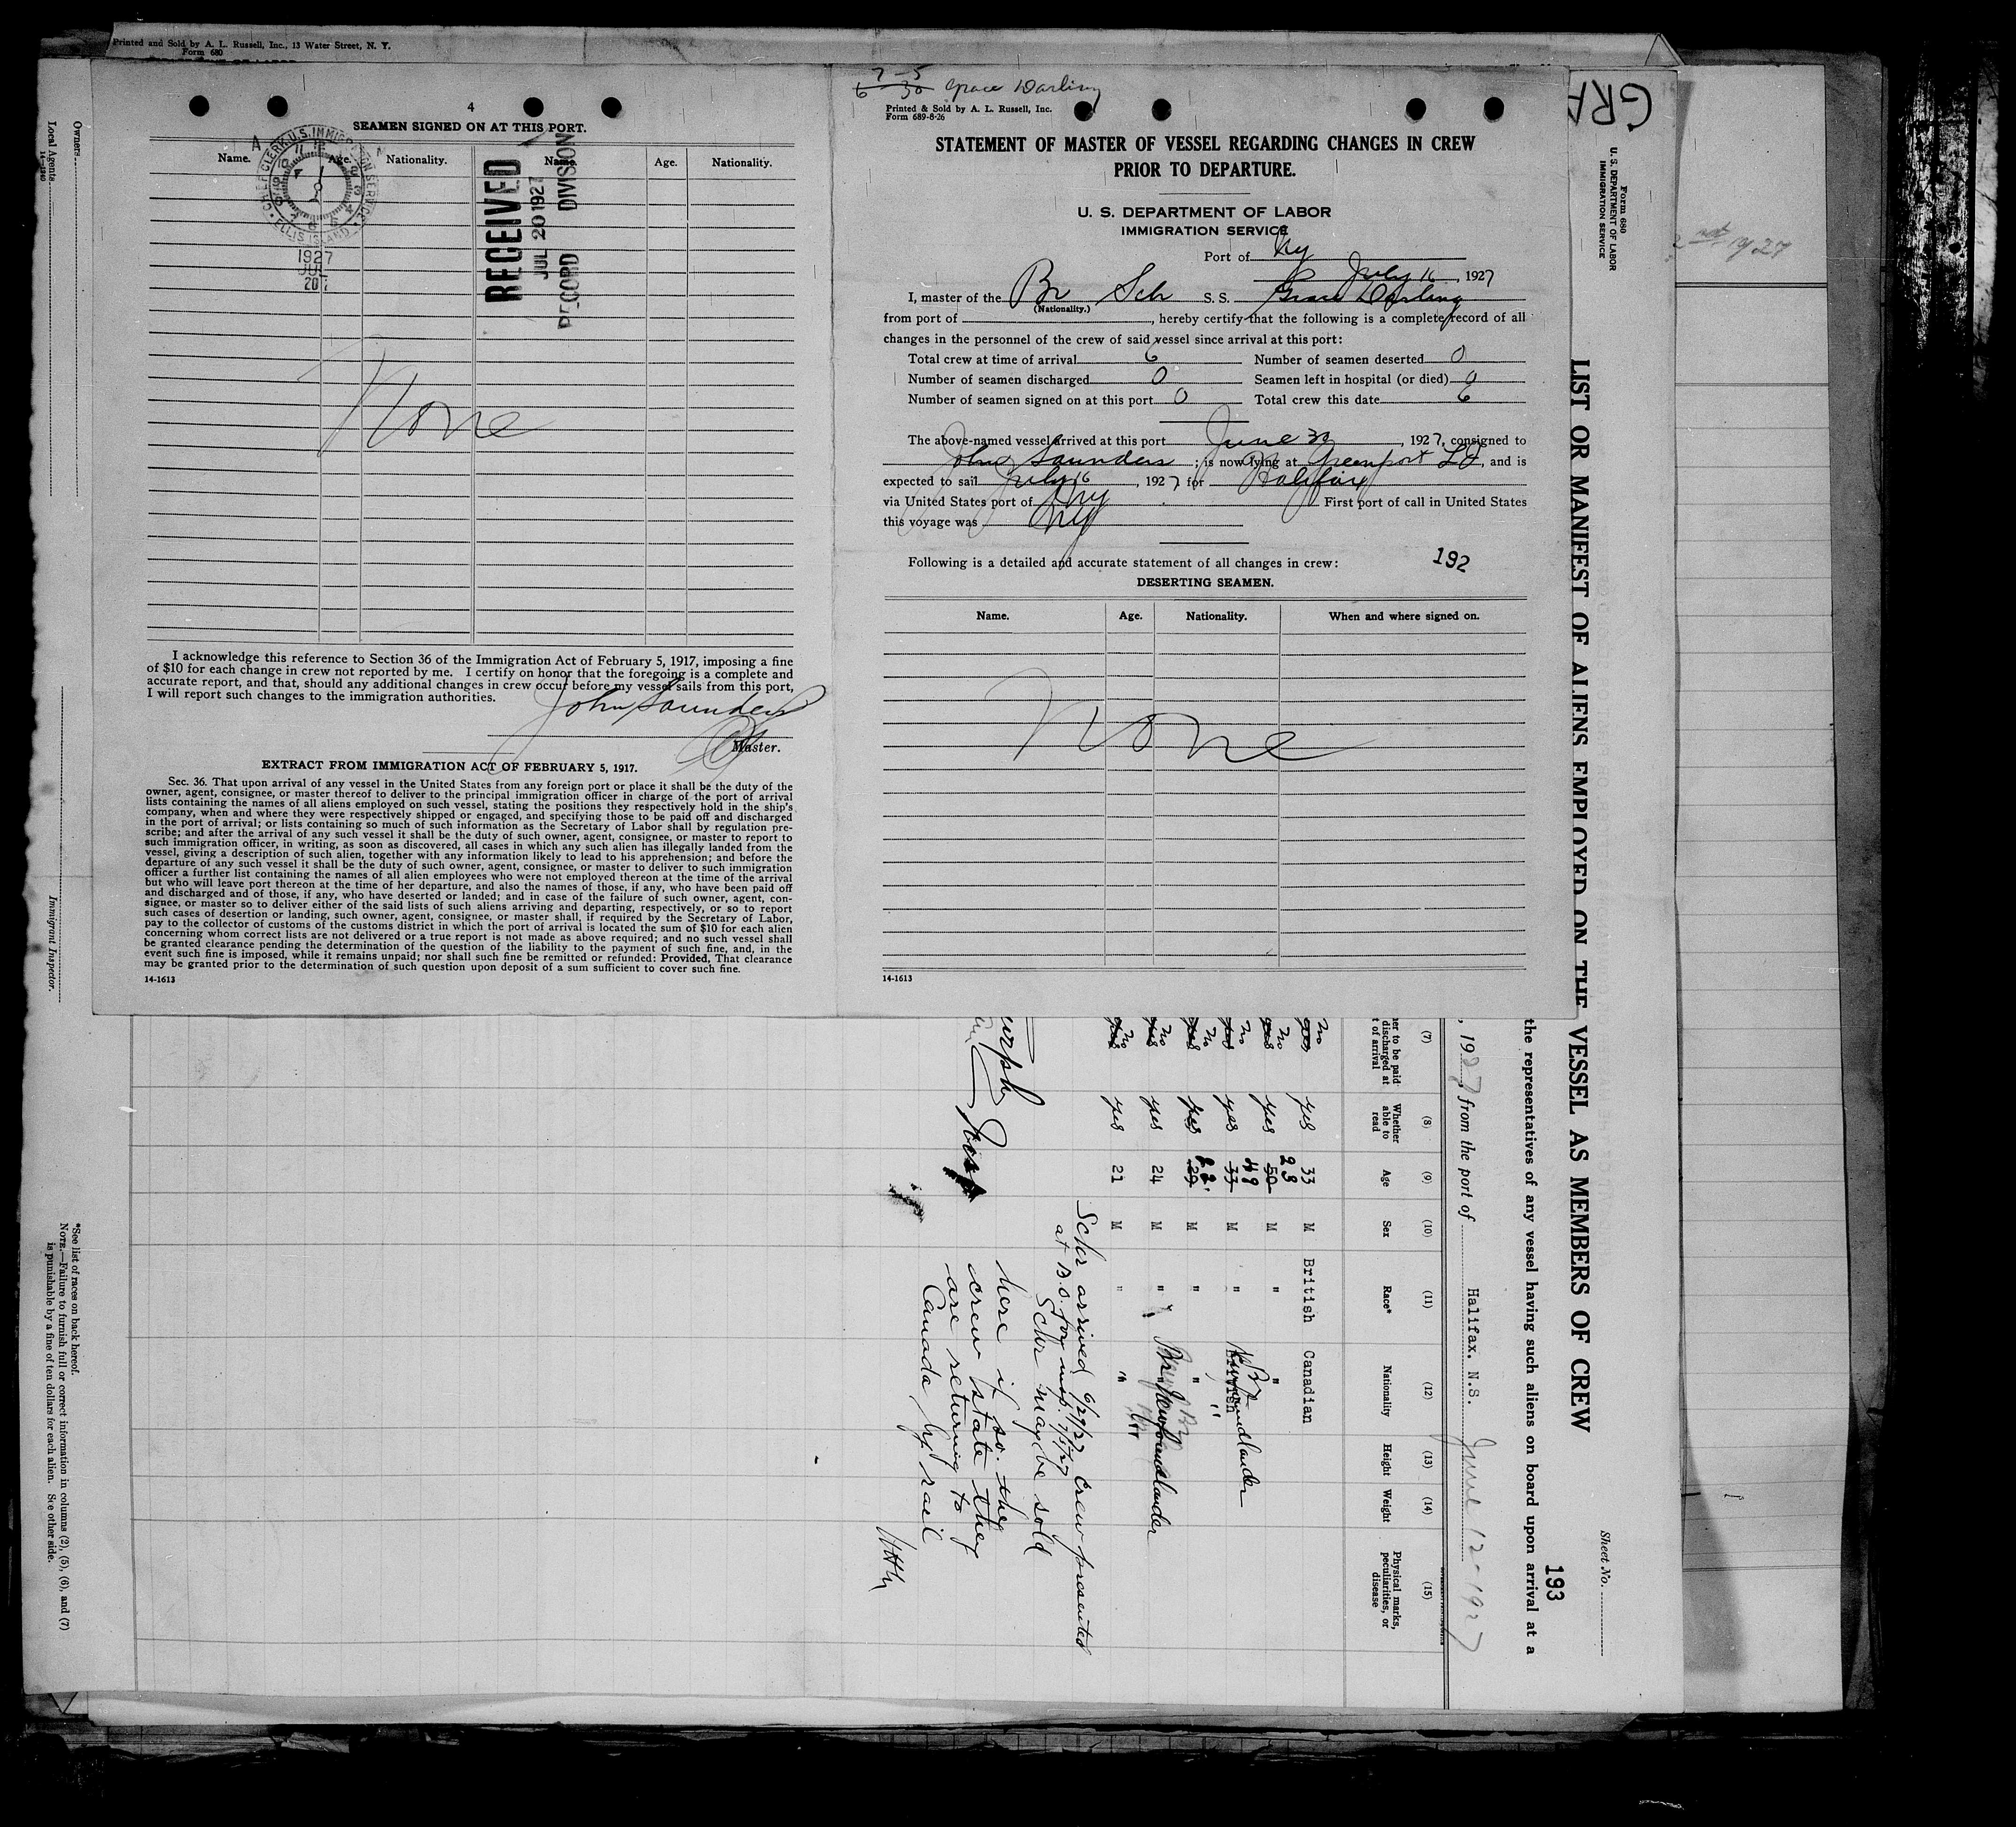 Printed and Sold by A. L. Russell, Inc., 13 Water Street, N. Y.
Form 680
4
SEAMEN SIGNED ON AT THIS PORT.
Name. Age. Nationality. Name. Age. Nationality.
CHIEF CLERK U.S. IMMIGRATION SERVICE
ELLIS ISLAND
1927
JUL
20
RECEIVED
JUL 20 1927
RECORD DIVISION
None
I acknowledge this reference to Section 36 of the Immigration Act of February 5, 1917, imposing a fine
of $10 for each change in crew not reported by me. I certify on honor that the foregoing is a complete and
accurate report, and that, should any additional changes in crew occur before my vessel sails from this port,
I will report such changes to the immigration authorities.
John Saunders
Master.
EXTRACT FROM IMMIGRATION ACT OF FEBRUARY 5, 1917.
Sec. 36. That upon arrival of any vessel in the United States from any foreign port or place it shall be the duty of the
owner, agent, consignee, or master thereof to deliver to the principal immigration officer in charge of the port of arrival
lists containing the names of all aliens employed on such vessel, stating the positions they respectively hold in the ship's
company, when and where they were respectively shipped or engaged, and specifying those to be paid off and discharged
in the port of arrival; or lists containing so much of such information as the Secretary of Labor shall by regulation pre-
scribe; and after the arrival of any such vessel it shall be the duty of such owner, agent, consignee, or master to report to
such immigration officer, in writing, as soon as discovered, all cases in which any such alien has illegally landed from the
vessel, giving a description of such alien, together with any information likely to lead to his apprehension; and before the
departure of any such vessel it shall be the duty of such owner, agent, consignee, or master to deliver to such immigration
officer a further list containing the names of all alien employees who were not employed thereon at the time of the arrival
but who will leave port thereon at the time of her departure, and also the names of those, if any, who have been paid off
and discharged and of those, if any, who have deserted or landed; and in case of the failure of such owner, agent, con-
signee, or master so to deliver either of the said lists of such aliens arriving and departing, respectively, or so to report
such cases of desertion or landing, such owner, agent, consignee, or master shall, if required by the Secretary of Labor,
pay to the collector of customs of the customs district in which the port of arrival is located the sum of $10 for each alien
concerning whom correct lists are not delivered or a true report is not made as above required; and no such vessel shall
be granted clearance pending the determination of the question of the liability to the payment of such fine, and, in the
event such fine is imposed, while it remains unpaid; nor shall such fine be remitted or refunded: Provided, That clearance
may be granted prior to the determination of such question upon deposit of a sum sufficient to cover such fine.
14-1613
7-5
6 30 Grace Darling
Printed & Sold by A. L. Russell, Inc.
Form 689-8-26
STATEMENT OF MASTER OF VESSEL REGARDING CHANGES IN CREW
PRIOR TO DEPARTURE.
U. S. DEPARTMENT OF LABOR
IMMIGRATION SERVICE
Port of Ny
July 16, 1927
I, master of the Br Sch S. S. Grace Darling
(Nationality.)
from port of , hereby certify that the following is a complete record of all
changes in the personnel of the crew of said vessel since arrival at this port:
Total crew at time of arrival 6 Number of seamen deserted 0
Number of seamen discharged 0 Seamen left in hospital (or died) 0
Number of seamen signed on at this port 0 Total crew this date 6
The above-named vessel arrived at this port June 30, 1927, consigned to
John Saunders; is now lying at Greenport L I, and is
expected to sail July 16, 1927 for Halifax
via United States port of Ny First port of call in United States
this voyage was Ny
Following is a detailed and accurate statement of all changes in crew:
192
DESERTING SEAMEN.
Name. Age. Nationality. When and where signed on.
None
14-1613
GRA
Form 680
U. S. DEPARTMENT OF LABOR
IMMIGRATION SERVICE
Sheet No.
LIST OR MANIFEST OF ALIENS EMPLOYED ON THE VESSEL AS MEMBERS OF CREW
193
the representatives of any vessel having such aliens on board upon arrival at a
, 1927, from the port of Halifax. N.S. June 12-1927
(7) (8) (9) (10) (11) (12) (13) (14) (15)
her to be paid
discharged at
t of arrival
Whether
able to
read
Age
Sex
Race*
Nationality
Height
Weight
Physical marks,
peculiarities, or
disease
no yes 33 M British Canadian
no yes 50 23 M " "
no yes 33 48 M " Br
no yes 29 22 M " "
no yes 24 M " Newfoundlander
no yes 21 M " "
Schr arrived 6/29/27 crew presented
at B.O. for insp. 7/5/27
Schr may be sold
here if so. they
crew state they
are returning to
Canada by rail
Owners
Local Agents
14-1240
Immigrant Inspector.
*See list of races on back hereof.
NOTE.—Failure to furnish full or correct information in columns (2), (5), (6), and (7)
is punishable by a fine of ten dollars for each alien. See other side.